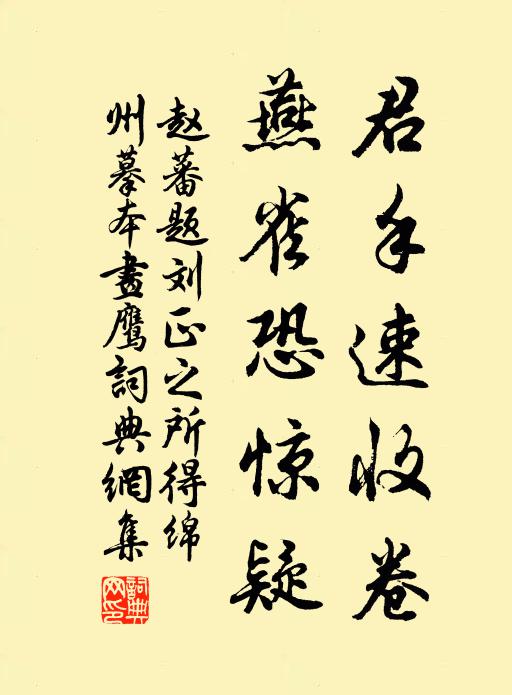 君手速收卷
燕雀恐惊疑
赵蕃题刘正之所得绵
州摹本畫鹰詞典網集
詞典網印